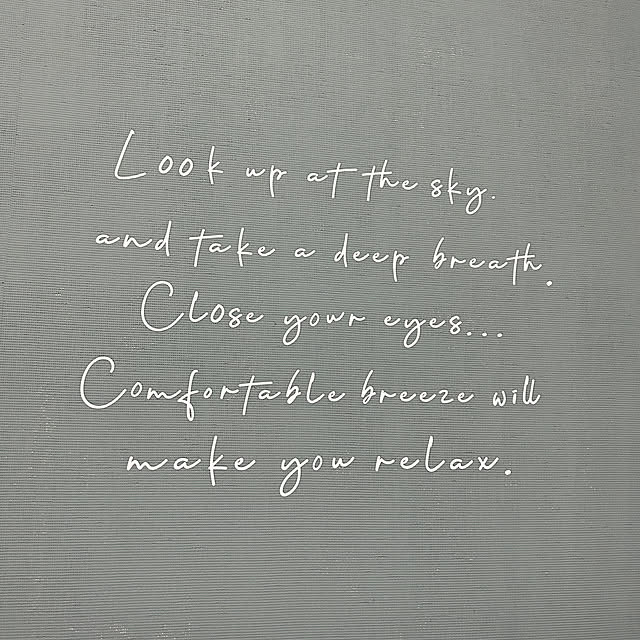 Look up at the sky.
and take a deep breath.
Close your eyes...
Comfortable breeze will
make you relax.